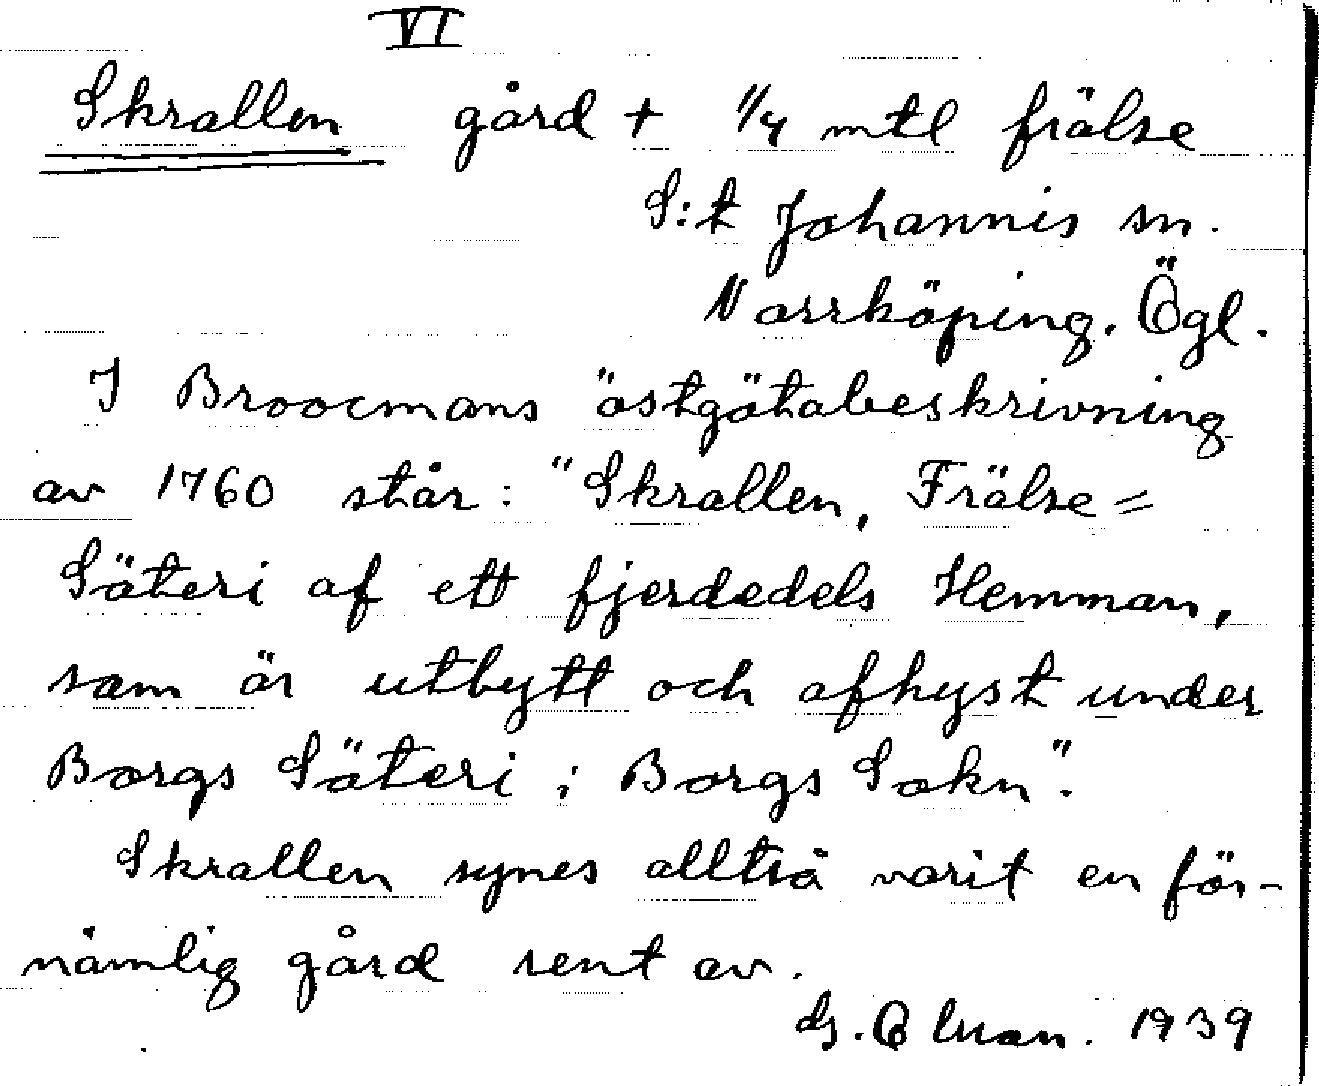 VI
Skrallen gård + 1/4 mtl frälse
S:t Johannis sn.
Norrköping. Ögl.
I Broocmans östgötabeskrivning
av 1760 står: "Skrallen, Frälse=
Säteri af ett fjerdedels Hemman,
som är utbytt och afhyst under
Borgs Säteri i Borgs Sokn".
Skrallen synes alltså varit en för-
nämlig gård rent av.
G. 1939